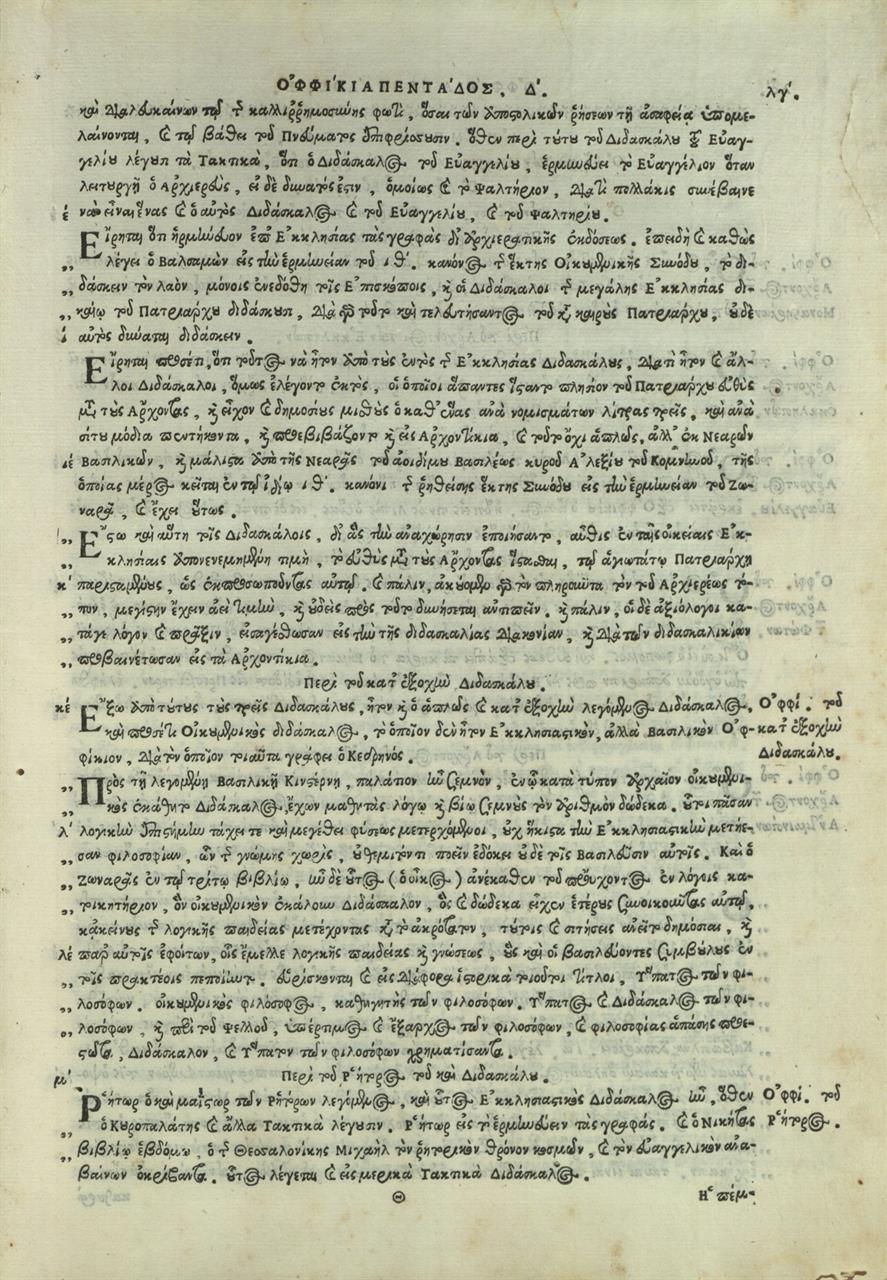 ΟΦΦΙΚΙΑ ΠΕΝΤΑΔΟΣ, Δ΄. λγ΄.
καὶ Διαλευκαίνων τῷ τῆς καλλιῤῥημοσύνης φωτὶ, ὅσαι τῶν Ἀποστολικῶν ῥήσεων τῇ ἀσαφεία ὑπομε-
λαίνονται, καὶ τῷ βάθει τοῦ Πνεύματος
γελίου λέγουσι τὰ Τακτικὰ, ὅτι ὁ Διδάσκαλος τοῦ Εὐαγγελίου, ἑρμηνεύει τὸ Εὐαγγέλιον ὅταν
λειτουργῇ ὁ Ἀρχιερεὺς, εἰ δὲ δυνατός ἐστιν, ὁμοίως καὶ τὸ Ψαλτήριον, Διατὶ πολλάκις συνέβαινε
ἐ νὰ εἶναι ἕνας καὶ ὁ αὐτὸς Διδάσκαλος καὶ τοῦ Εὐαγγελίου, καὶ τοῦ Ψαλτηρίου.
Εἴρηται ὅτι ἡρμήνευον ἐπ' Ἐκκλησίας τὰς γραφὰς δι' Ἀρχιερατικῆς ἐκδόσεως. ἐπειδὴ καὶ καθὼς
,, λέγει ὁ Βαλσαμὼν εἰς τὴν ἑρμηνείαν τοῦ ιθ΄. κανόνος τῆς ἕκτης Οἰκουμενικῆς Συνόδου, τὸ δι-
,, δάσκειν τὸν λαὸν, μόνοις ἐνεδόθη τοῖς Ἐπισκόποις, καὶ οἱ Διδάσκαλοι τῆς μεγάλης Ἐκκλησίας δι-
,, καίῳ τοῦ Πατριάρχου διδάσκουσι, Διὰ γὰρ τοῦτο καὶ τελευτήσαντος τοῦ κατὰ καιροὺς Πατριάρχου, οὐδὲ
ί αὐτὸς δύναται διδάσκειν.
Εἴρηται προσέτι, ὅτι οὗτος νὰ ἦτον ἀπὸ τοὺς ἐντὸς τῆς Ἐκκλησίας Διδασκάλους, Διατὶ ἦτον καὶ ἄλ-
λοι Διδάσκαλοι, ὅμως ἐλέγοντο ἐκτὸς, οἱ ὁποῖοι ἅπαντες ἵσταντο πλησίον τοῦ Πατριάρχου εὐθὺς
μετὰ τοὺς Ἄρχοντας, καὶ εἶχον καὶ δημοσίους μισθοὺς ὁ καθ' ἕνας ἀνὰ νομισμάτων λίτρας τρεῖς, καὶ ἀνὰ
σίτου μόδια πεντήκοντα, καὶ προεβιβάζοντο καὶ εἰς Ἀρχοντίκια, καὶ τοῦτο ὄχι ἁπλῶς, ἀλλ' ἐκ Νεαρῶν
ιέ Βασιλικῶν, καὶ μάλιστα ἀπὸ τῆς Νεαρᾶς τοῦ ἀοιδίμου Βασιλέως κυροῦ Ἀλεξίου τοῦ Κομνηνοῦ, τῆς
ὁποίας μέρος κεῖται ἐν τῷ ἰδίῳ ιθ΄. κανόνι τῆς ῥηθείσης ἕκτης Συνόδου εἰς τὴν ἑρμηνείαν τοῦ Ζω-
ναρᾶ, καὶ ἔχει οὕτως.
,, Ἔστω καὶ αὕτη τοῖς Διδασκάλοις, δι' ἃς τὴν ἀναχώρησιν ἐποιήσαντο, αὖθις ἐν ταῖς οἰκείαις Ἐκ-
,, κλησίαις ἀπονενεμημένη τιμὴ, τὸ εὐθὺς μετὰ τοὺς Ἄρχοντας ἵστασθαι, τῷ ἁγιωτάτῳ Πατριάρχῃ
κ΄ παρισταμένους, ὡς ἐκπροσωποῦντας αὐτῷ. καὶ πάλιν, ἀκούομεν γὰρ τὸν πληροῦντα τὸν τοῦ Ἀρχιερέως τό-
,, πον, μεγίστην ἔχειν ἀεὶ τιμὴν, καὶ οὐδεὶς πρὸς τοῦτο δυνήσεται ἀντιπεῖν. καὶ πάλιν, οἱ δὲ ἀξιόλογοι κα-
,, τάγε λόγον καὶ πρᾶξιν, εἰσαγέσθωσαν εἰς τὴν τῆς διδασκαλίας Διακονίαν, καὶ Διὰ τῶν διδασκαλικίων
,, προβαινέτωσαν εἰς τὰ Ἀρχοντίκια.
Περὶ τοῦ κατ' ἐξοχὴν Διδασκάλου.
κέ Ἔξω ἀπὸ τούτους τοὺς τρεῖς Διδασκάλους, ἦτον καὶ ὁ ἁπλῶς καὶ κατ' ἐξοχὴν λεγόμενος Διδάσκαλος, Ὀφφί. τοῦ
καὶ προσέτι Οἰκουμενικὸς διδάσκαλος, τὸ ὁποῖον δὲν ἦτον Ἐκκλησιαστικὸν, ἀλλὰ Βασιλικὸν Ὀφ- κατ' ἐξοχὴν
φίκιον, Διὰ τὸν ὁποῖον τοιαῦτα γράφει ὁ Κεδρηνός. Διδασκάλου.
,, Πρὸς τῇ λεγομένῃ Βασιλικῇ Κινστέρνῃ, παλάτιον ἦν σεμνὸν, ἐν ᾧ κατὰ τύπον ἀρχαῖον οἰκουμενι-
,, κὸς ἐκάθητο Διδάσκαλος, ἔχων μαθητὰς λόγῳ καὶ βίῳ σεμνοὺς τὸν ἀριθμὸν δώδεκα. οὗτοι πᾶσαν
λ΄ λογικὴν ἐπιστήμην τάχει τε καὶ μεγέθει φύσεως μετερχόμενοι, οὐχ ἥκιστα τὴν Ἐκκλησιαστικὴν μετῄε-
,, σαν φιλοσοφίαν, ὧν τῆς γνώμης χωρὶς, οὐ θεμιτόν τι ποιεῖν ἐδόκει οὐδὲ τοῖς Βασιλεῦσιν αὐτοῖς. Καὶ ὁ
,, Ζωναρᾶς ἐν τῷ τρίτῳ βιβλίῳ, ἦν δὲ οὗτος (ὁ οἶκος) ἀνέκαθεν τοῦ προὔχοντος ἐν λόγοις κα-
,, τοικητήριον, ὃν οἰκουμενικὸν ἐκάλουν Διδάσκαλον, ὃς καὶ δώδεκα εἶχεν ἑτέρους συνοικοῦντας αὐτῷ,
,, κἀκείνους τῆς λογικῆς παιδείας μετέχοντας κατὰ τὸ ἀκρότατον, τούτοις καὶ σιτήσεις ἀνεῖντο δημόσιαι, καὶ
λέ παρ' αὐτοῖς ἐφοίτων, οἷς ἔμελλε λογικῆς παιδείας καὶ γνώσεως, οὓς καὶ οἱ βασιλεύοντες συμβούλους ἐν
,, τοῖς πρακτέοις πεποίηντο. εὑρίσκονται καὶ εἰς Διάφορα ἱστορικὰ τοιοῦτοι τίτλοι, Ὕπατος τῶν φι-
,, λοσόφων. οἰκουμενικὸς φιλόσοφος, καθηγητὴς τῶν φιλοσόφων. Ὕπατος καὶ Διδάσκαλος τῶν φι-
,, λοσόφων, καὶ περὶ τοῦ Ψελλοῦ, ὑπέρτιμος καὶ ἔξαρχος τῶν φιλοσόφων, καὶ φιλοσοφίας ἁπάσης προε-
,, στῶτα, Διδάσκαλον, καὶ Ὕπατον τῶν φιλοσόφων χρηματίσαντα.
μ΄ Περὶ τοῦ Ῥήτορος τοῦ καὶ Διδασκάλου.
Ῥήτωρ ὁ καὶ μαΐστωρ τῶν Ῥητόρων λεγόμενος, καὶ οὗτος Ἐκκλησιαστικὸς Διδάσκαλος ἦν, ὅθεν Ὀφφί. τοῦ
,, ὁ Κυροπαλάτης καὶ ἄλλα Τακτικὰ λέγουσιν. Ῥήτωρ εἰς τὸ ἑρμηνεύειν τὰς γραφάς. καὶ ὁ Νικήτας Ῥήτορος.
,, βιβλίῳ ἑβδόμῳ, ὁ τῆς Θεσσαλονίκης Μιχαὴλ τὸν ῥητορικὸν θρόνον κοσμῶν, καὶ τὸν εὐαγγελικὸν ἀνα-
βαίνων ὀκρίβαντα. οὗτος λέγεται καὶ εἰς μερικὰ Τακτικὰ Διδάσκαλος.
Θ Ἡ πέμ-